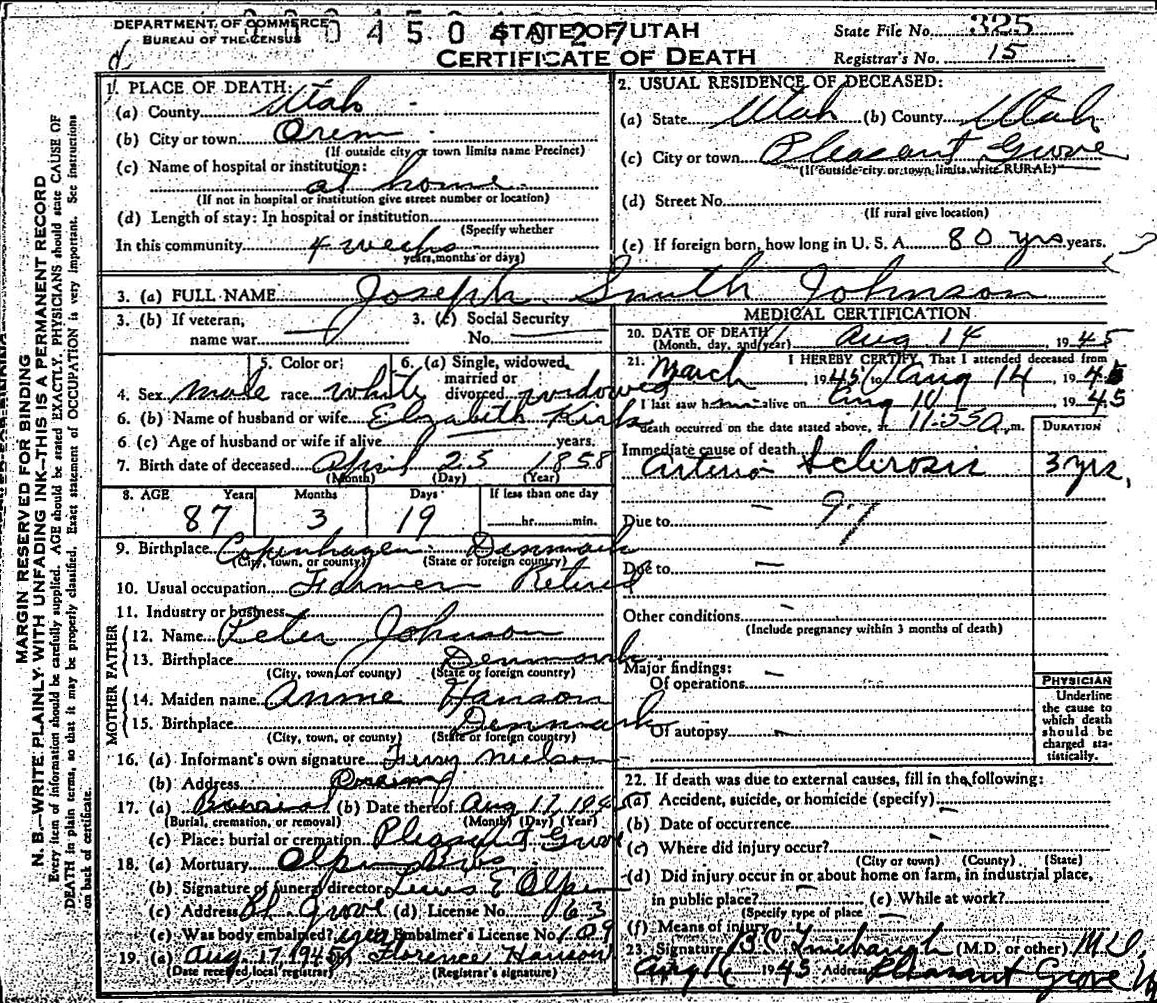 DEPARTMENT OF COMMERCE
BUREAU OF THE CENSUS
STATE OF UTAH
CERTIFICATE OF DEATH
State File No. 325
Registrar's No. 15
MARGIN RESERVED FOR BINDING
N. B.—WRITE PLAINLY, WITH UNFADING INK—THIS IS A PERMANENT RECORD
Every item of information should be carefully supplied. AGE should be stated EXACTLY. PHYSICIANS should state CAUSE OF
DEATH in plain terms, so that it may be properly classified. Exact statement of OCCUPATION is very important. See instructions
on back of certificate.
1. PLACE OF DEATH:
(a) County Utah
(b) City or town Orem
(If outside city or town limits name Precinct)
(c) Name of hospital or institution:
at home
(If not in hospital or institution give street number or location)
(d) Length of stay: In hospital or institution
(Specify whether
In this community 4 weeks
years, months or days)
2. USUAL RESIDENCE OF DECEASED:
(a) State Utah (b) County Utah
(c) City or town Pleasant Grove
(If outside city or town limits write RURAL)
(d) Street No.
(If rural give location)
(e) If foreign born, how long in U. S. A. 80 yrs years.
3. (a) FULL NAME Joseph Smith Johnson
3. (b) If veteran,
name war
3. (c) Social Security
No.
4. Sex male
5. Color or
race white
6. (a) Single, widowed,
married or
divorced widowed
6. (b) Name of husband or wife Elizabeth Kirk
6. (c) Age of husband or wife if alive years.
7. Birth date of deceased April 25 1858
(Month) (Day) (Year)
8. AGE Years Months Days If less than one day
87 3 19 hr. min.
9. Birthplace Copenhagen Denmark
(City, town, or county) (State or foreign country)
10. Usual occupation Farmer Retired
11. Industry or business
FATHER
12. Name Peter Johnson
13. Birthplace Denmark
(City, town, or county) (State or foreign country)
MOTHER
14. Maiden name Annie Hanson
15. Birthplace Denmark
(City, town, or county) (State or foreign country)
16. (a) Informant's own signature Nielson
(b) Address
17. (a) Burial (b) Date thereof Aug 17, 194
(Burial, cremation, or removal) (Month) (Day) (Year)
(c) Place: burial or cremation Pleasant Grove
18. (a) Mortuary
(b) Signature of funeral director
(c) Address Pl. Grove (d) License No. 163
(e) Was body embalmed? yes Embalmer's License No. 109
19. (a) Aug. 17, 1945 Florence Hanson
(Date received local registrar) (Registrar's signature)
MEDICAL CERTIFICATION
20. DATE OF DEATH Aug 14 1945
(Month, day, and year)
21. I HEREBY CERTIFY, That I attended deceased from
March 1945 to Aug 14, 1945
I last saw him alive on Aug 10 1945
death occurred on the date stated above, at 11:55 a.m.
DURATION
Immediate cause of death
Arterio Sclerosis 3 yrs.
Due to 97
Due to
Other conditions
(Include pregnancy within 3 months of death)
Major findings:
Of operations
Of autopsy
PHYSICIAN
Underline
the cause to
which death
should be
charged sta-
tistically.
22. If death was due to external causes, fill in the following:
(a) Accident, suicide, or homicide (specify)
(b) Date of occurrence
(c) Where did injury occur?
(City or town) (County) (State)
(d) Did injury occur in or about home on farm, in industrial place,
in public place? (e) While at work?
(Specify type of place
(f) Means of injury
23. Signature B C Linebaugh (M.D. or other) M.D.
Aug 16 1945 Address Pleasant Grove